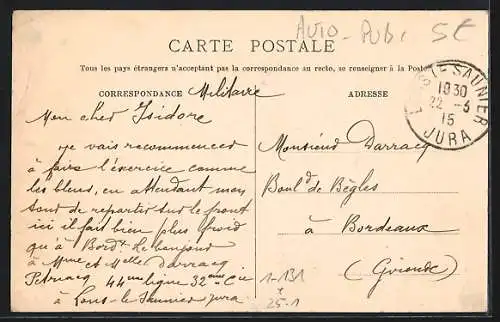 AUTO - PUB. 5€
CARTE POSTALE
Tous les pays étrangers n'acceptant pas la correspondance au recto, se renseigner à la Poste
CORRESPONDANCE Militaire
ADRESSE
LONS-LE-SAUNIER
1030
22 -3
15
JURA
Mon cher Isidore
Je vais recommencer
à faire l'exercice comme
les bleus, en attendant mon
tour de repartir sur le front
ici il fait bien plus froid
qu'à Bordx Le bonjour
à Mme et Melle Darracq
44me ligne 32me Cie
à Lons-le-Saunier Jura
Monsieur Darracq
Boul.d de Bègles
à Bordeaux
(Gironde)
1-131
25-1